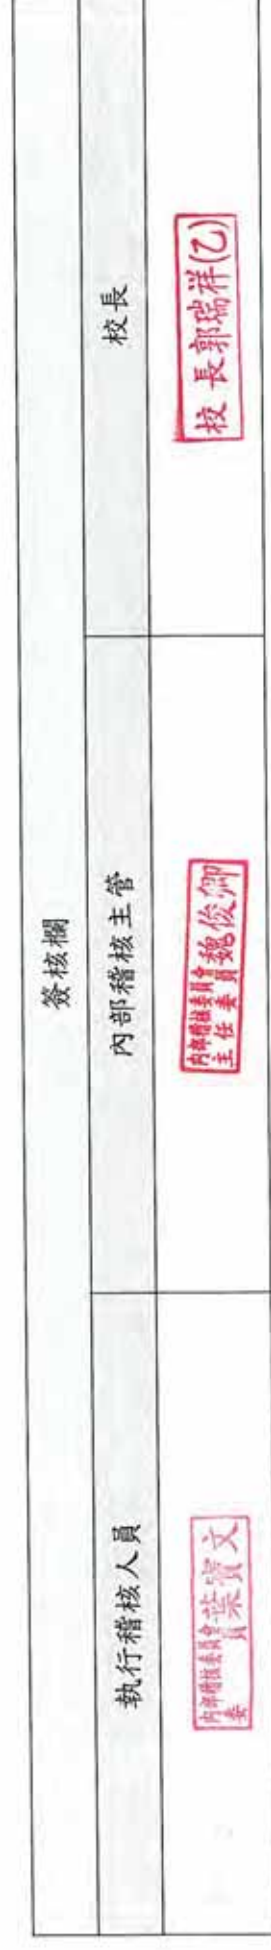 簽核欄
執行稽核人員
內部稽核主管
校長
內部稽核委員會
委員葉寶文
內部稽核委員會
主任委員魏俊卿
校長郭瑞祥(乙)